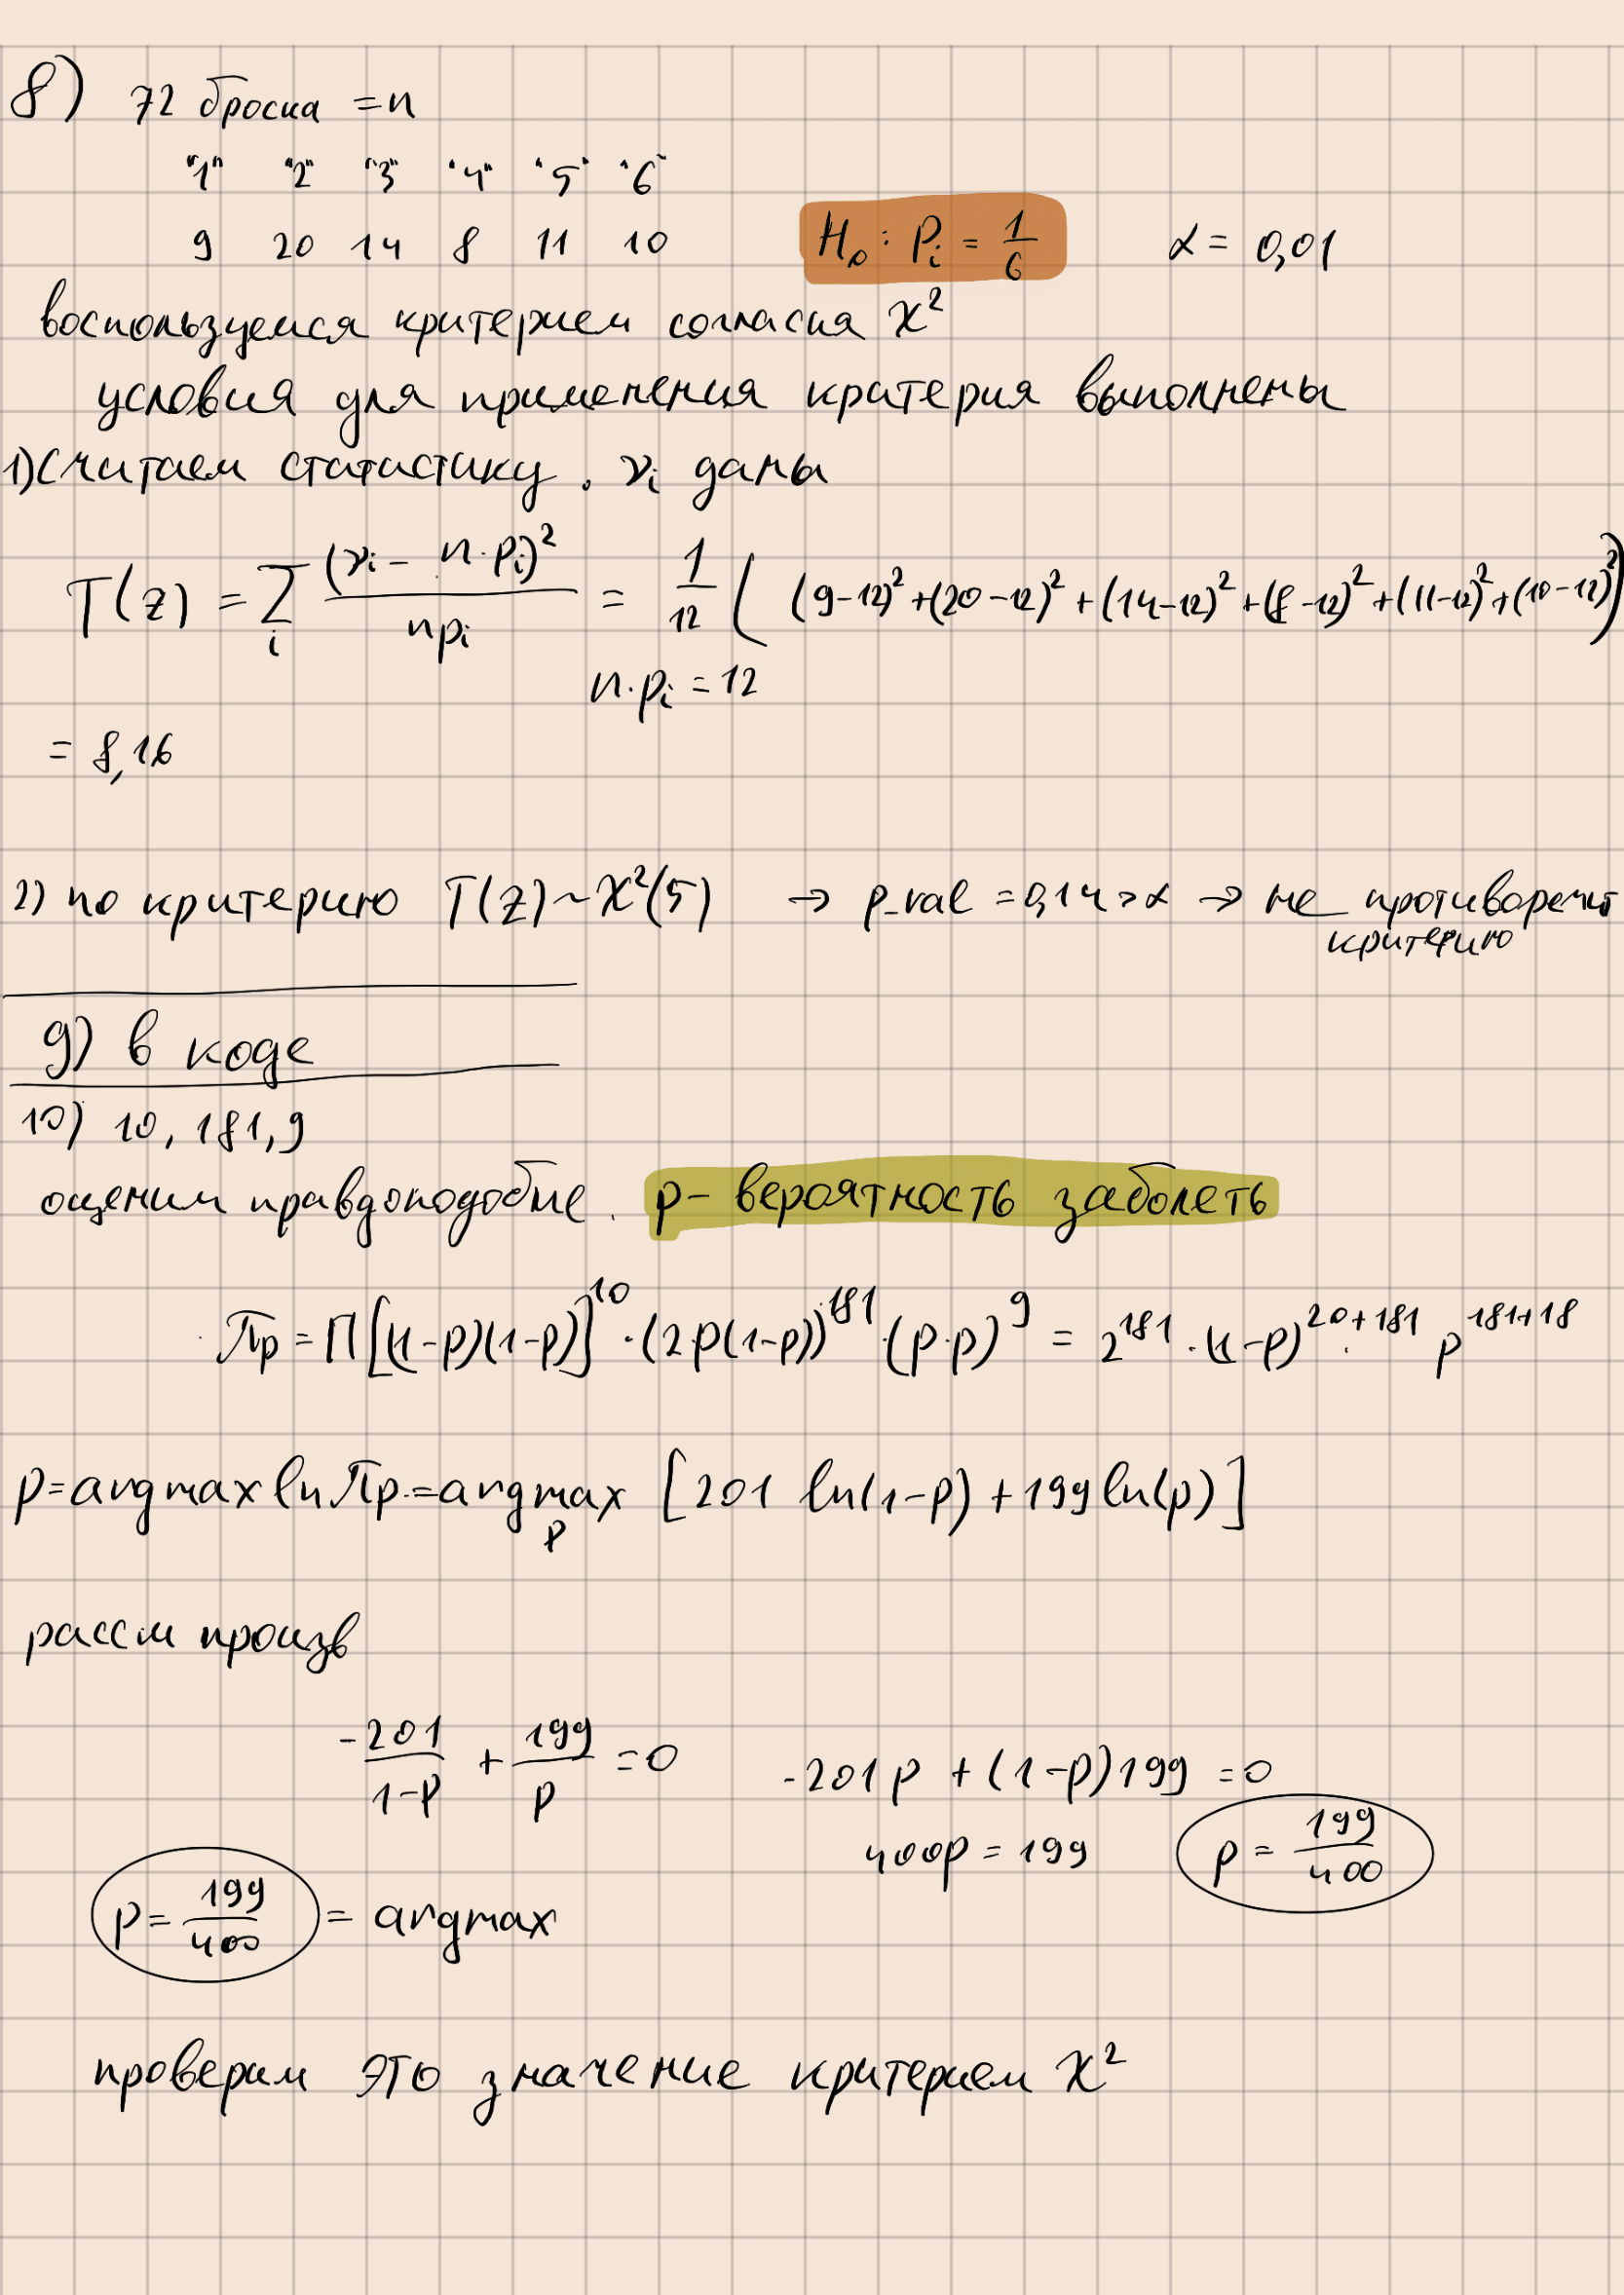 8) 72 броска = n
"1" "2" "3" "4" "5" "6"
9 20 14 8 11 10 H₀: Pᵢ = 1/6 α = 0,01
воспользуемся критерием согласия χ²
условия для применения критерия выполнены
1) Считаем статистику. νᵢ даны
T(z) = Σᵢ (νᵢ - n·pᵢ)² / npᵢ = 1/12 ( (9-12)² + (20-12)² + (14-12)² + (8-12)² + (11-12)² + (10-12)² )
n·pᵢ = 12
= 8,16
2) по критерию T(z) ~ χ²(5) → p_val = 0,14 > α → не противоречит
критерию
9) в коде
10) 10, 181, 9
оценим правдоподобие. p - вероятность заболеть
Пр = П[(1-p)(1-p)]¹⁰ · (2·p(1-p))¹⁸¹ · (p·p)⁹ = 2¹⁸¹ · (1-p)²⁰⁺¹⁸¹ p¹⁸¹⁺¹⁸
p = argmax ln Пр = argmax [201 ln(1-p) + 199 ln(p)]
p
рассм произв
-201/(1-p) + 199/p = 0 -201p + (1-p)199 = 0
400p = 199 p = 199/400
p = 199/400 = argmax
проверим это значение критерием χ²